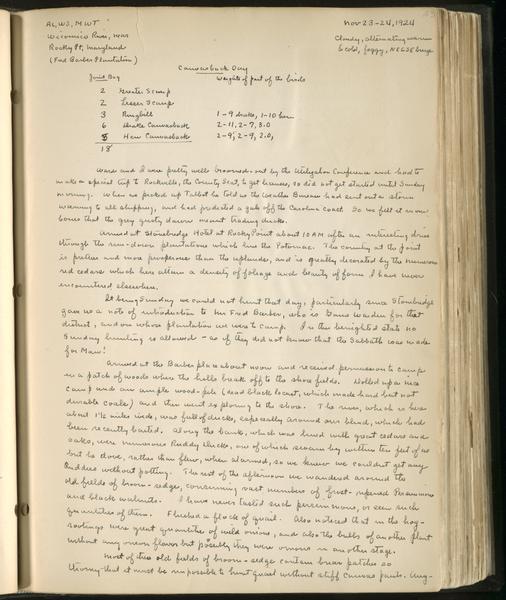 AL, WS, MWT
Nov 23-24, 1924
Wicomico River, near
Rocky Pt, Maryland
(Fred Barber Plantation)
Cloudy, alternating warm
& cold, foggy, NE & SE breeze
Canvasback Day
Joint Bag
Weights of part of the birds
2 Greater Scaup
2 Lesser Scaup
3 Ringbill 1-9 drake, 1-10 hen
6 Drake Canvasback 2-11, 2-7, 3.0
5 Hen Canvasbacks 2-9, 2-9, 2.0,
18
Ware and I were pretty well browned out by the Utilization Conference and had to
make a special trip to Rockville, the County Seat, to get licenses, so did not get started until Sunday
morning. When we picked up Talbot he told us the Weather Bureau had sent out a storm
warning to all shipping, and had predicted a gale off the Carolina coast. So we felt it in our
bones that the grey gusty dawn meant trading ducks.
Arrived at Stonebridge Hotel at Rocky Point about 10 AM after an interesting drive
through the run-down plantations which line the Potomac. The country at the point
is prettier and more prosperous than the uplands, and is greatly decorated by the numerous
red cedars which here attain a density of foliage and beauty of form I have never
encountered elsewhere.
It being Sunday we could not hunt that day, particularly since Stonebridge
gave us a note of introduction to Mr Fred Barber, who is Game Warden for that
district, and on whose plantation we were to camp. In this benighted state no
Sunday hunting is allowed - as if they did not know that the Sabbath was made
for Man!
Arrived at the Barber place about noon and received permission to camp
in a patch of woods where the hills break off to the shore fields. Dolled up a nice
camp and an ample wood-pile (dead black locust, which made hard but not
durable coals) and then went exploring to the shore. The river, which is here
about 1½ miles wide, was full of ducks, especially around our blind, which had
been recently baited. Along the bank, which was lined with great cedars and
oaks, were numerous Ruddy Ducks, one of which swam by within ten feet of us
but he dove, rather than flew, when alarmed, so we knew we couldn't get any
Ruddies without potting. The rest of the afternoon we wandered around the
old fields of broom-sedge, consuming vast numbers of frost-ripened Persimmons
and black walnuts. I have never tasted such persimmons, or seen such
quantities of them. Flushed a flock of quail. Also noticed that in the hog-
rootings were great quantities of wild onions, and also the bulbs of another plant
without any onion flavor but possibly they were onions in another stage.
Most of the old fields of broom-sedge contain briar patches so
thorny that it must be impossible to hunt quail without stiff canvas pants. Any-